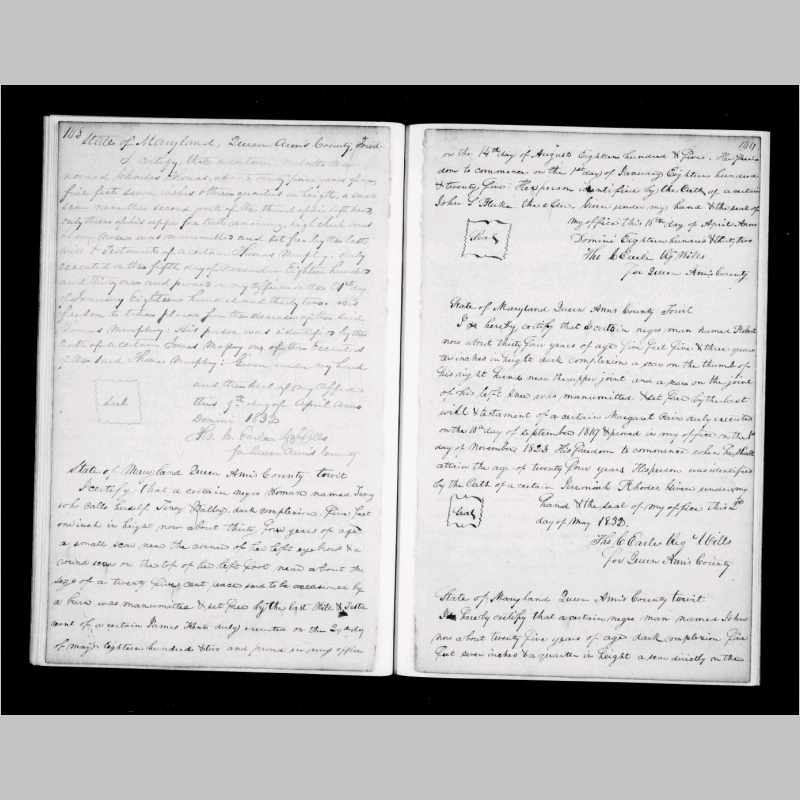 163
State of Maryland, Queen Anns County, Towit
I certify that a certain
named Charles about thirty five years
five feet seven inches & three quarters in height, a
scar near the second joint of the third of his left hand,
only three of his upper fore teeth remaining, high cheek bones
was manumitted and set free by the last
will & Testament of a certain Thomas Murphy duly
executed on the fifth day of November Eighteen hundred
and thirty one and proved in my office on the 31st day
of January Eighteen hundred and thirty two. His
freedom to take place
Thomas Murphy. His person was identified by the
oath of a certain James Murphy one of the Executors
of the said Thomas Murphy: Given under my hand
and the seal of my office
this 9th day of April Anno
Domini 1832
Seal
Tho. C. Earle Reg Wills
for Queen Anns County
State of Maryland Queen Ann's County towit
I certify that a certain negro Woman named
who calls herself dark complexion Five feet
one inch in height now about thirty four years of age
a small scar near the corner of her left eye brow & a
round scar on the top of her left foot near about the
size of a twenty five cent piece said to be occasioned by
a burn was manumitted & set free by the last Will & Testa
ment of a certain James duly executed on the 24th day
of may eighteen hundred & two and proved in my office
164
on the 14th day of August Eighteen hundred & five. Her free
dom to commence on the 1st day of January Eighteen hundred
& twenty five. Her person identified by the Oath of a certain
John S Given under my hand & the seal of
my office this 18th day of April Anno
Seal
Domini Eighteen hundred & thirty two
Tho C Earle Reg Wills
for Queen Ann's County
State of Maryland Queen Anns County Towit
I do hereby certify that a certain negro man named Robert
now about thirty five years of age five feet five & three quar
ter inches in height dark complexion a scar on the thumb of
his right hand near the upper joint and a scar on the joint
of his left knee was manumitted & set free by the last
will & testament of a certain Margaret duly executed
on the day of September 1819 & proved in my office on the
day of November 1823 His freedom to commence when he should
attain the age of twenty four years His person was identified
by the Oath of a certain Jeremiah Rhodes Given under my
Seal
hand & the seal of my office this 2nd
day of May 1832.
Tho C Earle Reg Wills
for Queen Ann's County
State of Maryland Queen Ann's County towit
I do hereby certify that a certain negro man named John
now about twenty five years of age dark complexion five
feet seven inches & a quarter in height a scar directly on the